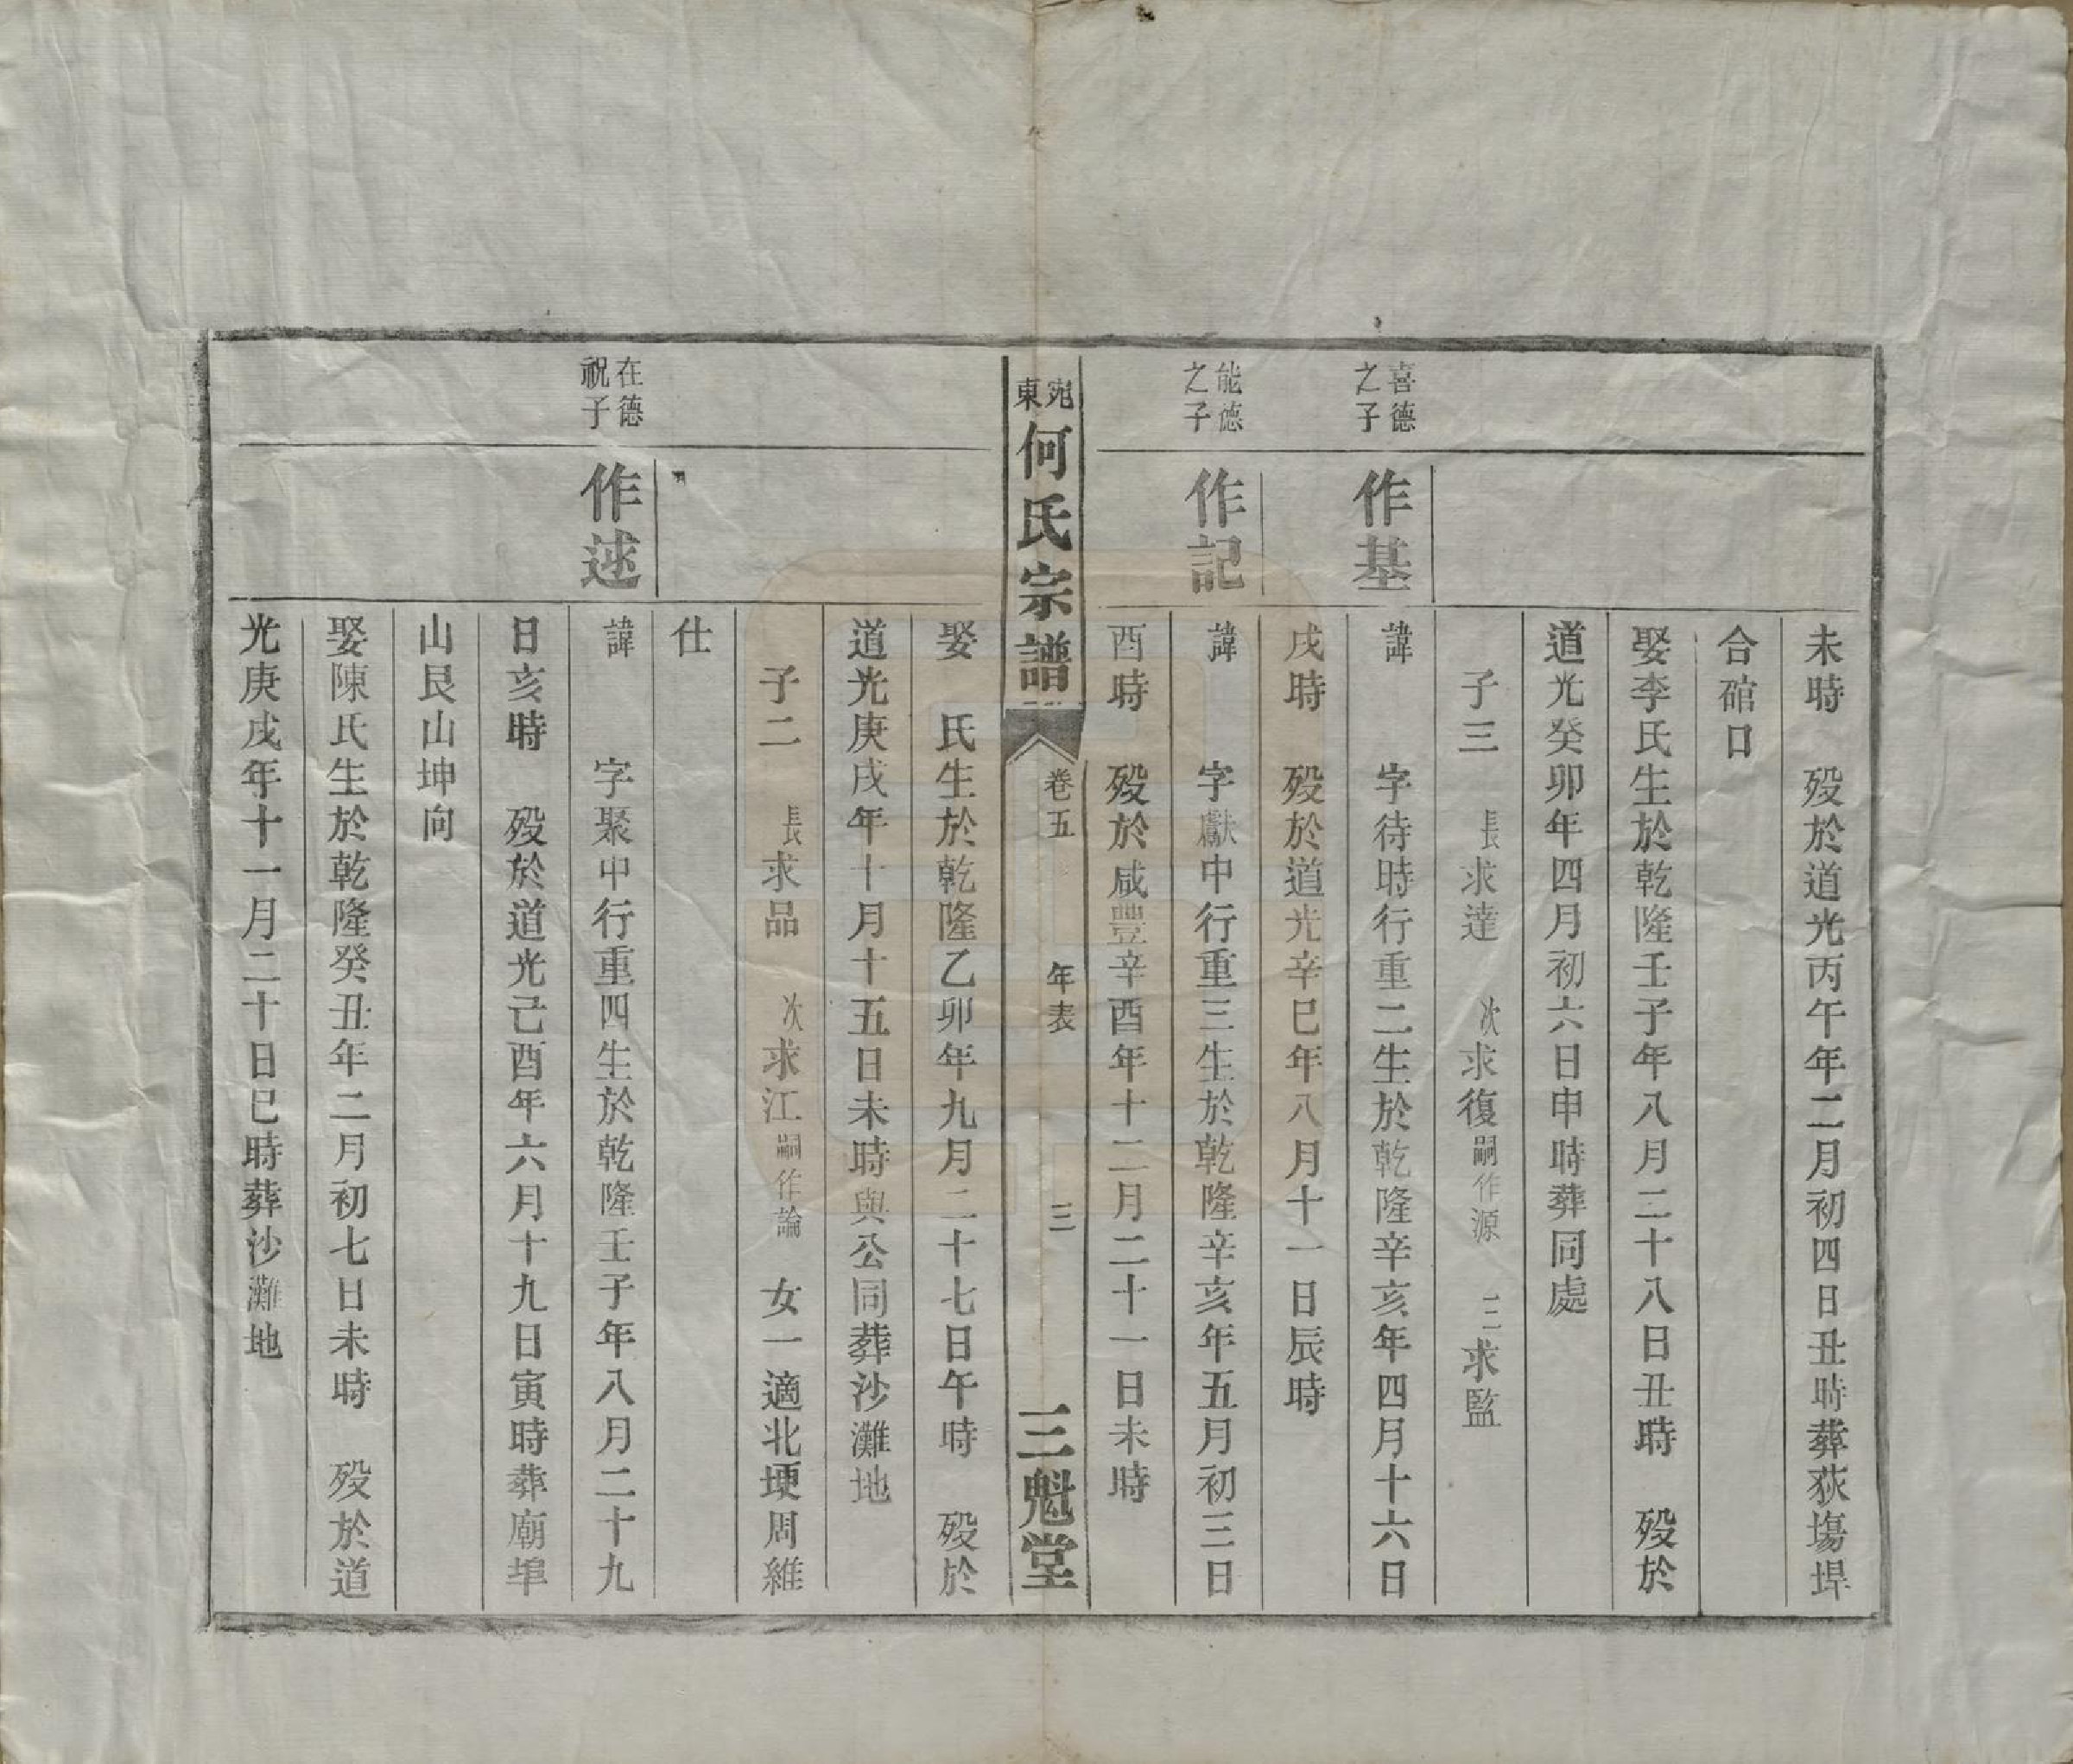 未時　殁於道光丙午年二月初四日丑時葬荻塲埠
合碹口
娶李氏生於乾隆壬子年八月二十八日丑時　殁於
道光癸卯年四月初六日申時葬同處
子三　長求達　次求復嗣作源　三求監
喜德之子
作基
諱　　字待時行重二生於乾隆辛亥年四月十六日
戌時　殁於道光辛巳年八月十一日辰時
能德之子
作記
諱　　字獻中行重三生於乾隆辛亥年五月初三日
酉時　殁於咸豐辛酉年十二月二十一日未時
宛東何氏宗譜　卷五　年表　三　三魁堂
娶　氏生於乾隆乙卯年九月二十七日午時　殁於
道光庚戌年十月十五日未時與公同葬沙灘地
子二　長求品　次求江嗣作論　女一適北埂周維
仕
在德祝子
作述
諱　　字聚中行重四生於乾隆壬子年八月二十九
日亥時　殁於道光己酉年六月十九日寅時葬廟埠
山艮山坤向
娶陳氏生於乾隆癸丑年二月初七日未時　殁於道
光庚戌年十一月二十日巳時葬沙灘地